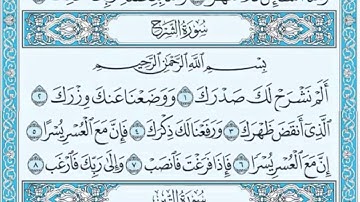 سُورَةُ الشَّرْحِ
بِسْمِ اللَّهِ الرَّحْمَٰنِ الرَّحِيمِ
أَلَمْ نَشْرَحْ لَكَ صَدْرَكَ ١ وَوَضَعْنَا عَنكَ وِزْرَكَ ٢
الَّذِي أَنقَضَ ظَهْرَكَ ٣ وَرَفَعْنَا لَكَ ذِكْرَكَ ٤ فَإِنَّ مَعَ الْعُسْرِ يُسْرًا ٥
إِنَّ مَعَ الْعُسْرِ يُسْرًا ٦ فَإِذَا فَرَغْتَ فَانصَبْ ٧ وَإِلَىٰ رَبِّكَ فَارْغَب ٨
سُورَةُ التِّينِ